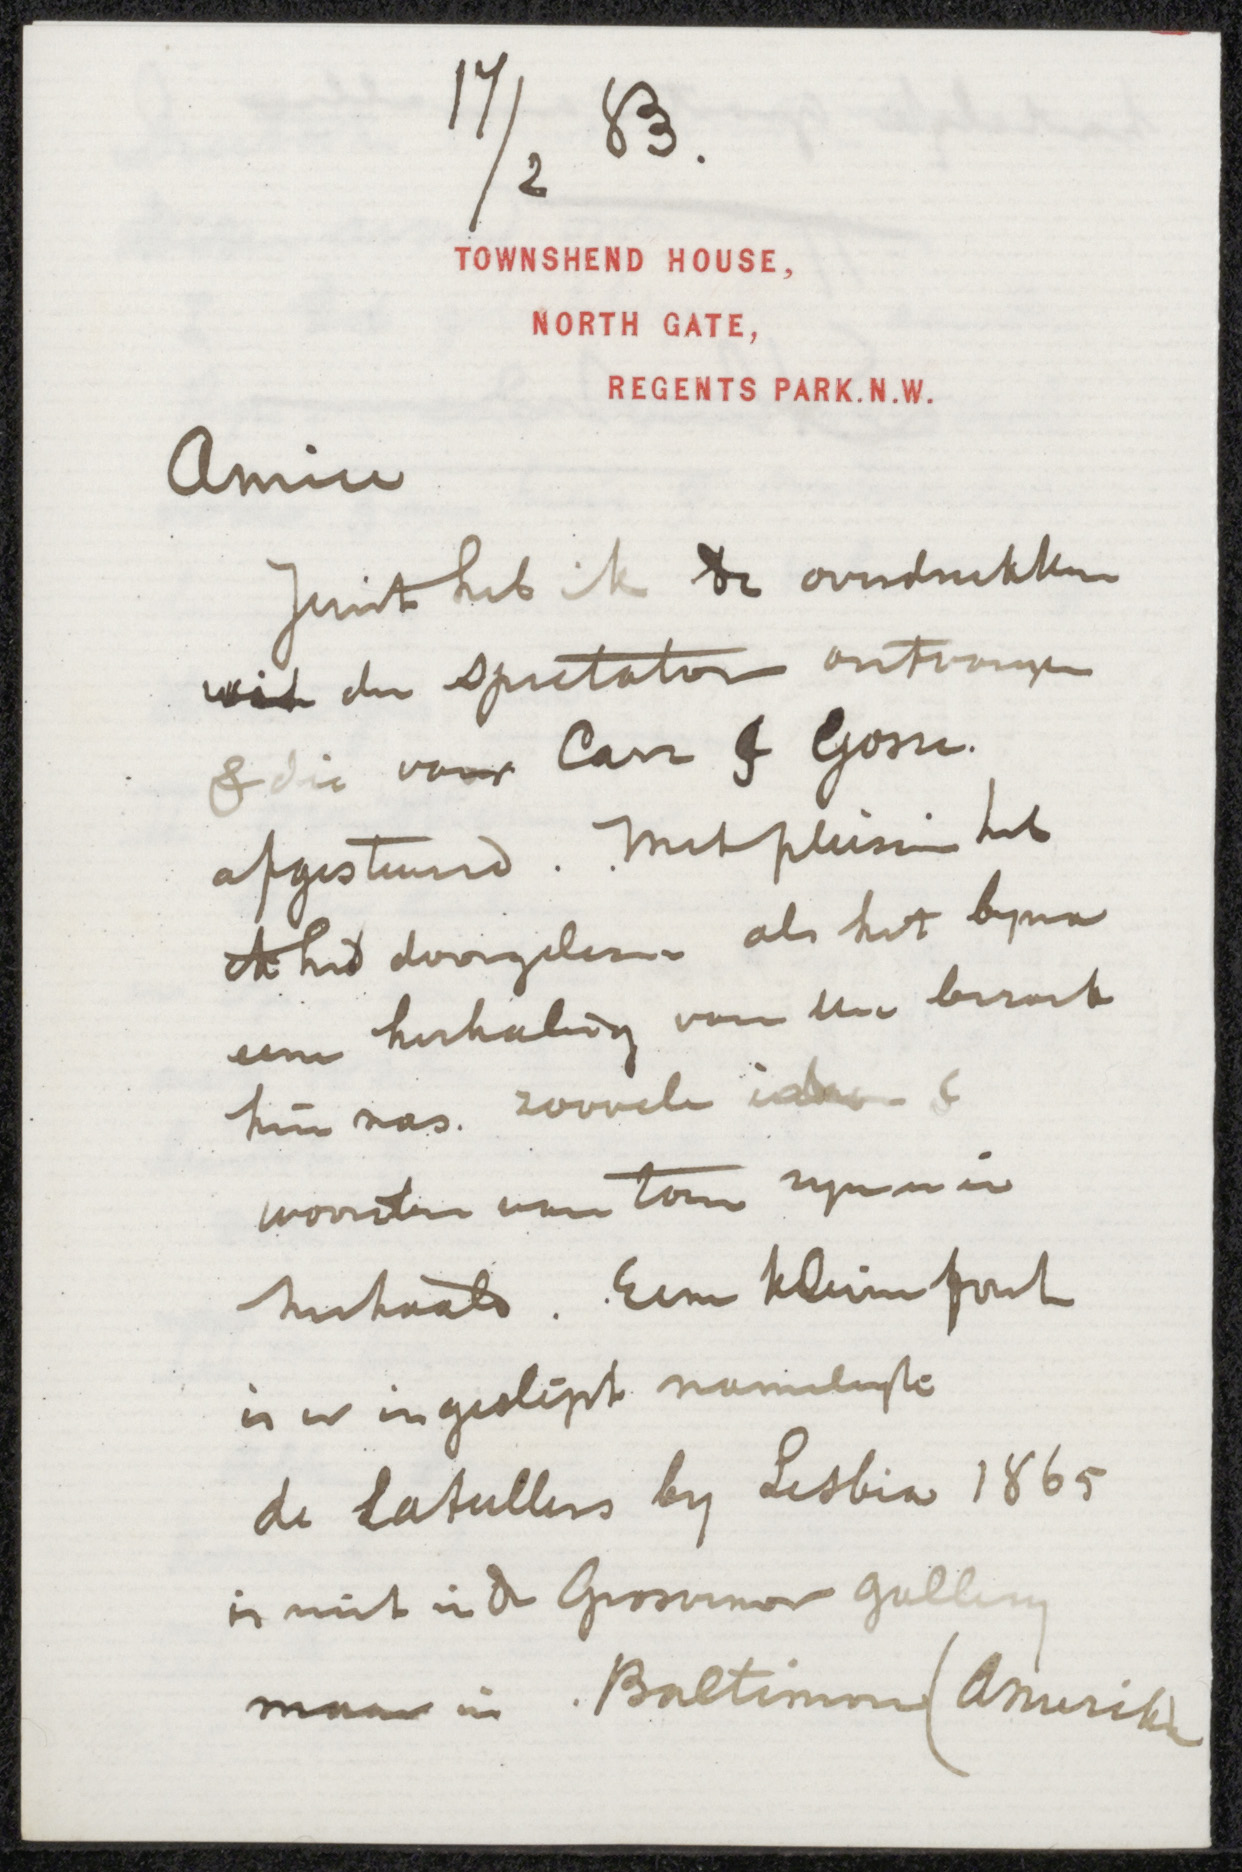 17/2 83.
TOWNSHEND HOUSE,
NORTH GATE,
REGENTS PARK.N.W.
Amice
Juist heb ik de overdrukken
uit den Spectator ontvangen
& die voor Carr & Gosse.
afgestuurd. Met plesier heb
ik het doorgelesen als het byna
eene herhaling van Uw bezoek
hier was. zoovele ideën &
woorden van toen zyn er in
herhaald. Eene kleine fout
is er in geslipt namelyk
de Catullus by Lesbia 1865
is niet in de Grosvenor gallery
maar in Baltimore (Amerika